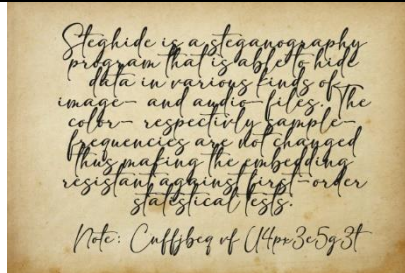 Steghide is a steganography
program that is able to hide
data in various kinds of
image- and audio-files. The
color- respectivly sample-
frequencies are not changed
thus making the embedding
resistant against first-order
statistical tests.
Note: Cuffjbeq vf